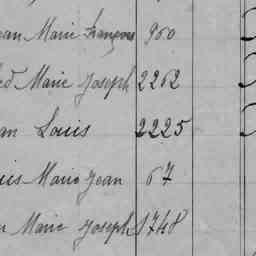 ean Marie François 960
ed Marie Joseph 2262
an Louis 2225
uis Marie Jean 67
n Marie Joseph 1748